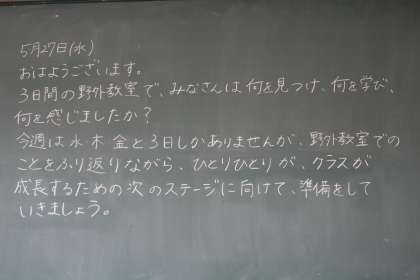 5月27日(水)
おはようございます。
3日間の野外教室で、みなさんは何を見つけ、何を学び、
何を感じましたか？
今週は水木金と3日しかありませんが、野外教室での
ことをふり返りながら、ひとりひとりが、クラスが
成長するための次のステージに向けて、準備をして
いきましょう。